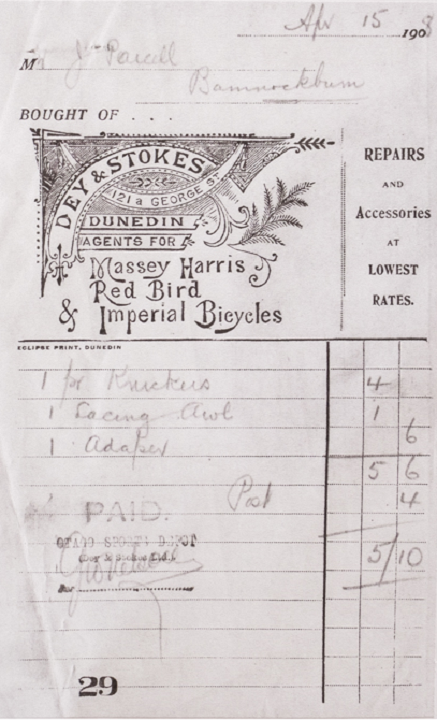 Apr 15 1908
M J Parcell
Bannockburn
BOUGHT OF . . .
DEY & STOKES
121a GEORGE ST
DUNEDIN
AGENTS FOR
Massey Harris
Red Bird
& Imperial Bicycles
REPAIRS
AND
Accessories
AT
LOWEST
RATES.
ECLIPSE PRINT, DUNEDIN
1 pr Knickers 4
1 Lacing Awl 1
1 Adapter 6
5 6
Post 4
PAID.
OTAGO SPORTS DEPOT
5/10
Per
29